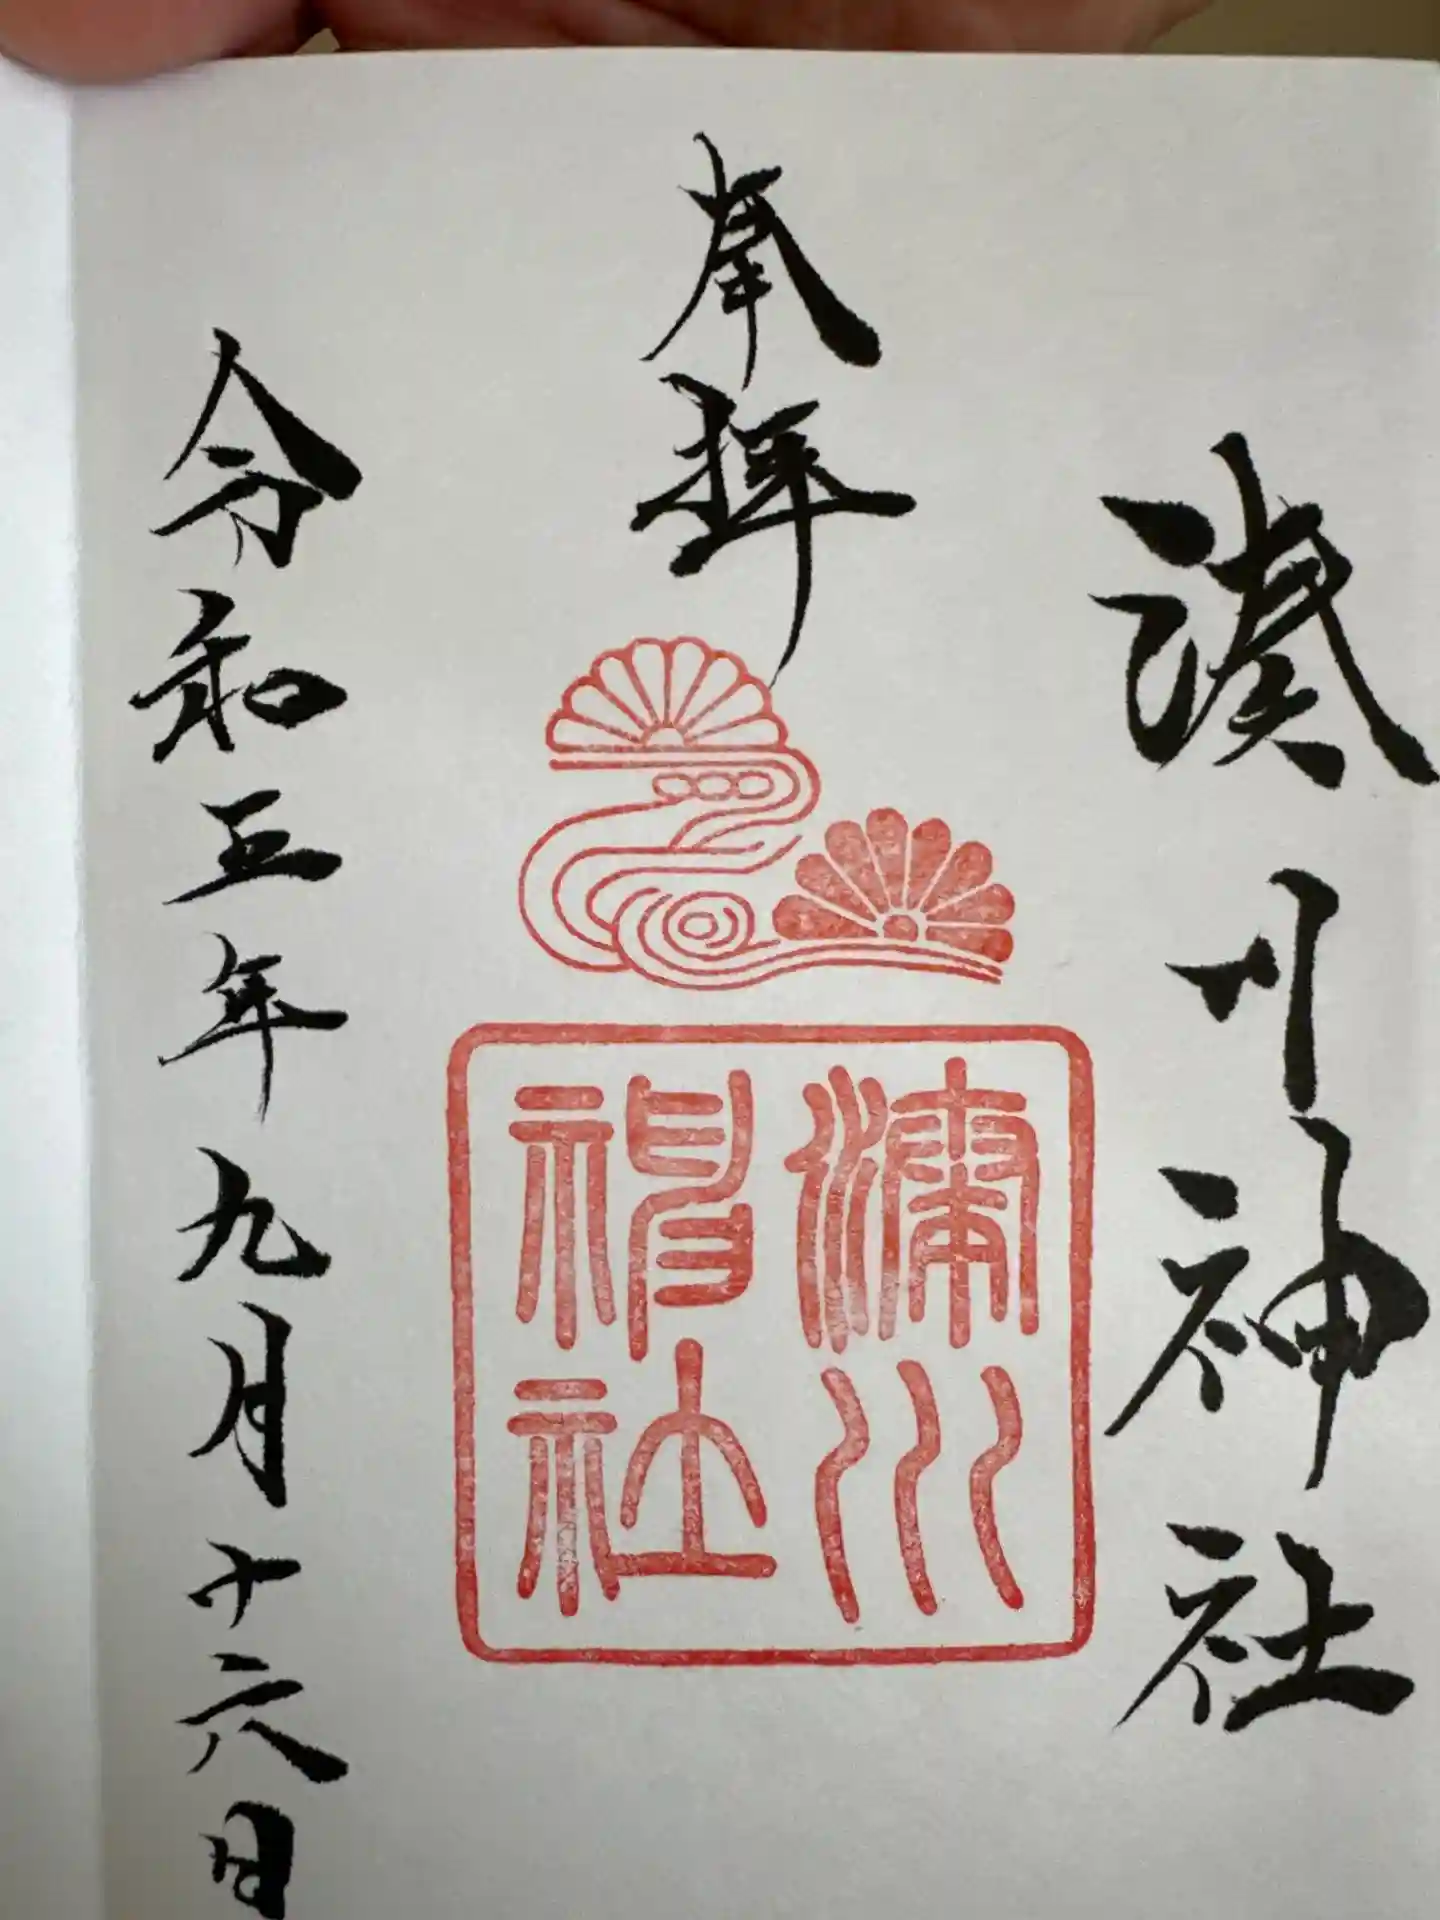 湊川神社
奉拝
湊川
神社
令和五年九月十六日